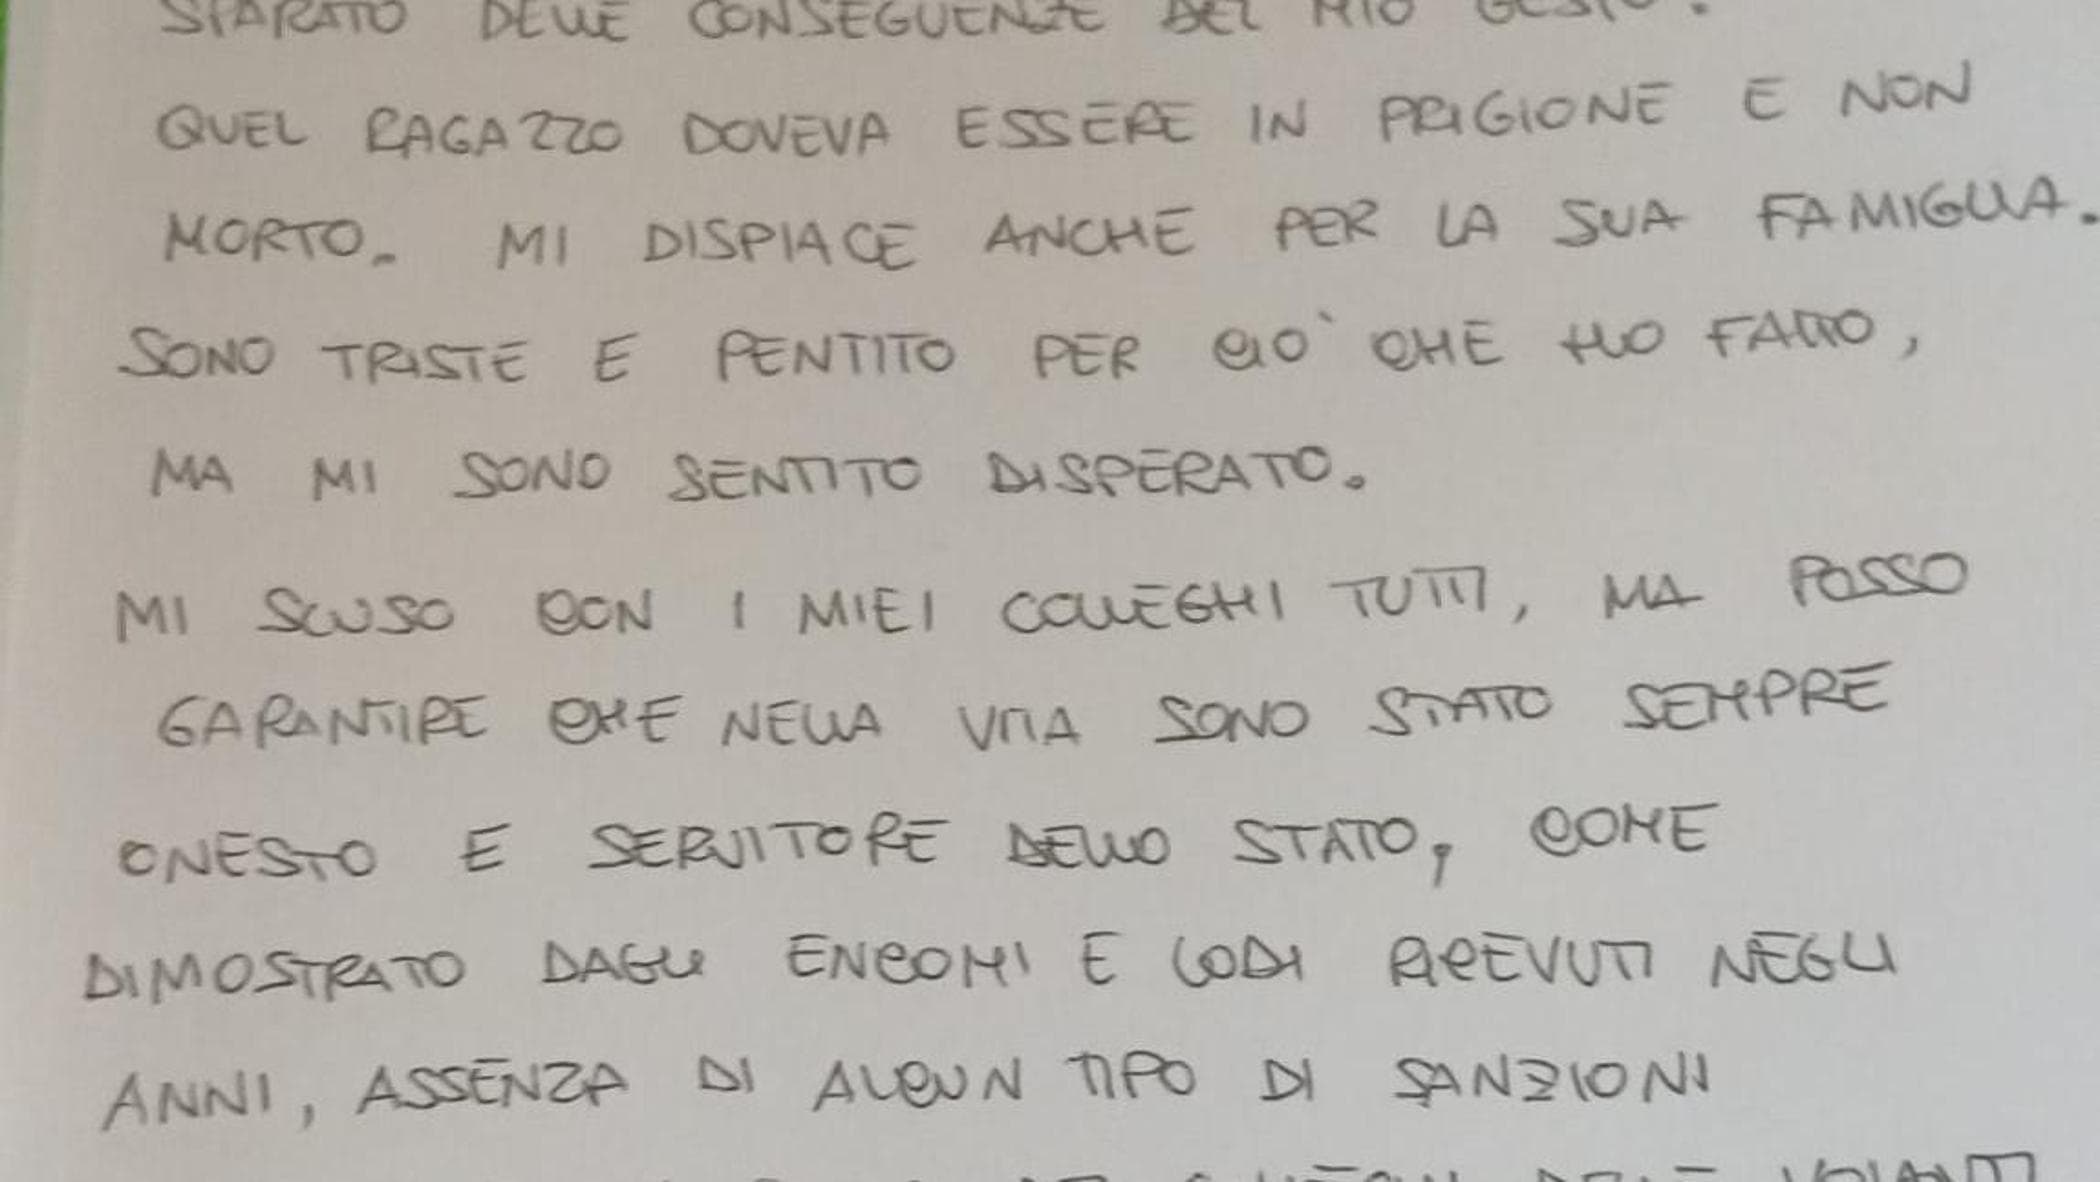 SPARATO DELLE CONSEGUENZE DEL MIO GESTO.
QUEL RAGAZZO DOVEVA ESSERE IN PRIGIONE E NON
MORTO. MI DISPIACE ANCHE PER LA SUA FAMIGLIA.
SONO TRISTE E PENTITO PER CIO' CHE HO FATTO,
MA MI SONO SENTITO DISPERATO.
MI SCUSO CON I MIEI COLLEGHI TUTTI, MA POSSO
GARANTIRE CHE NELLA VITA SONO STATO SEMPRE
ONESTO E SERVITORE DELLO STATO, COME
DIMOSTRATO DAGLI ENCOMI E LODI RICEVUTI NEGLI
ANNI, ASSENZA DI ALCUN TIPO DI SANZIONI